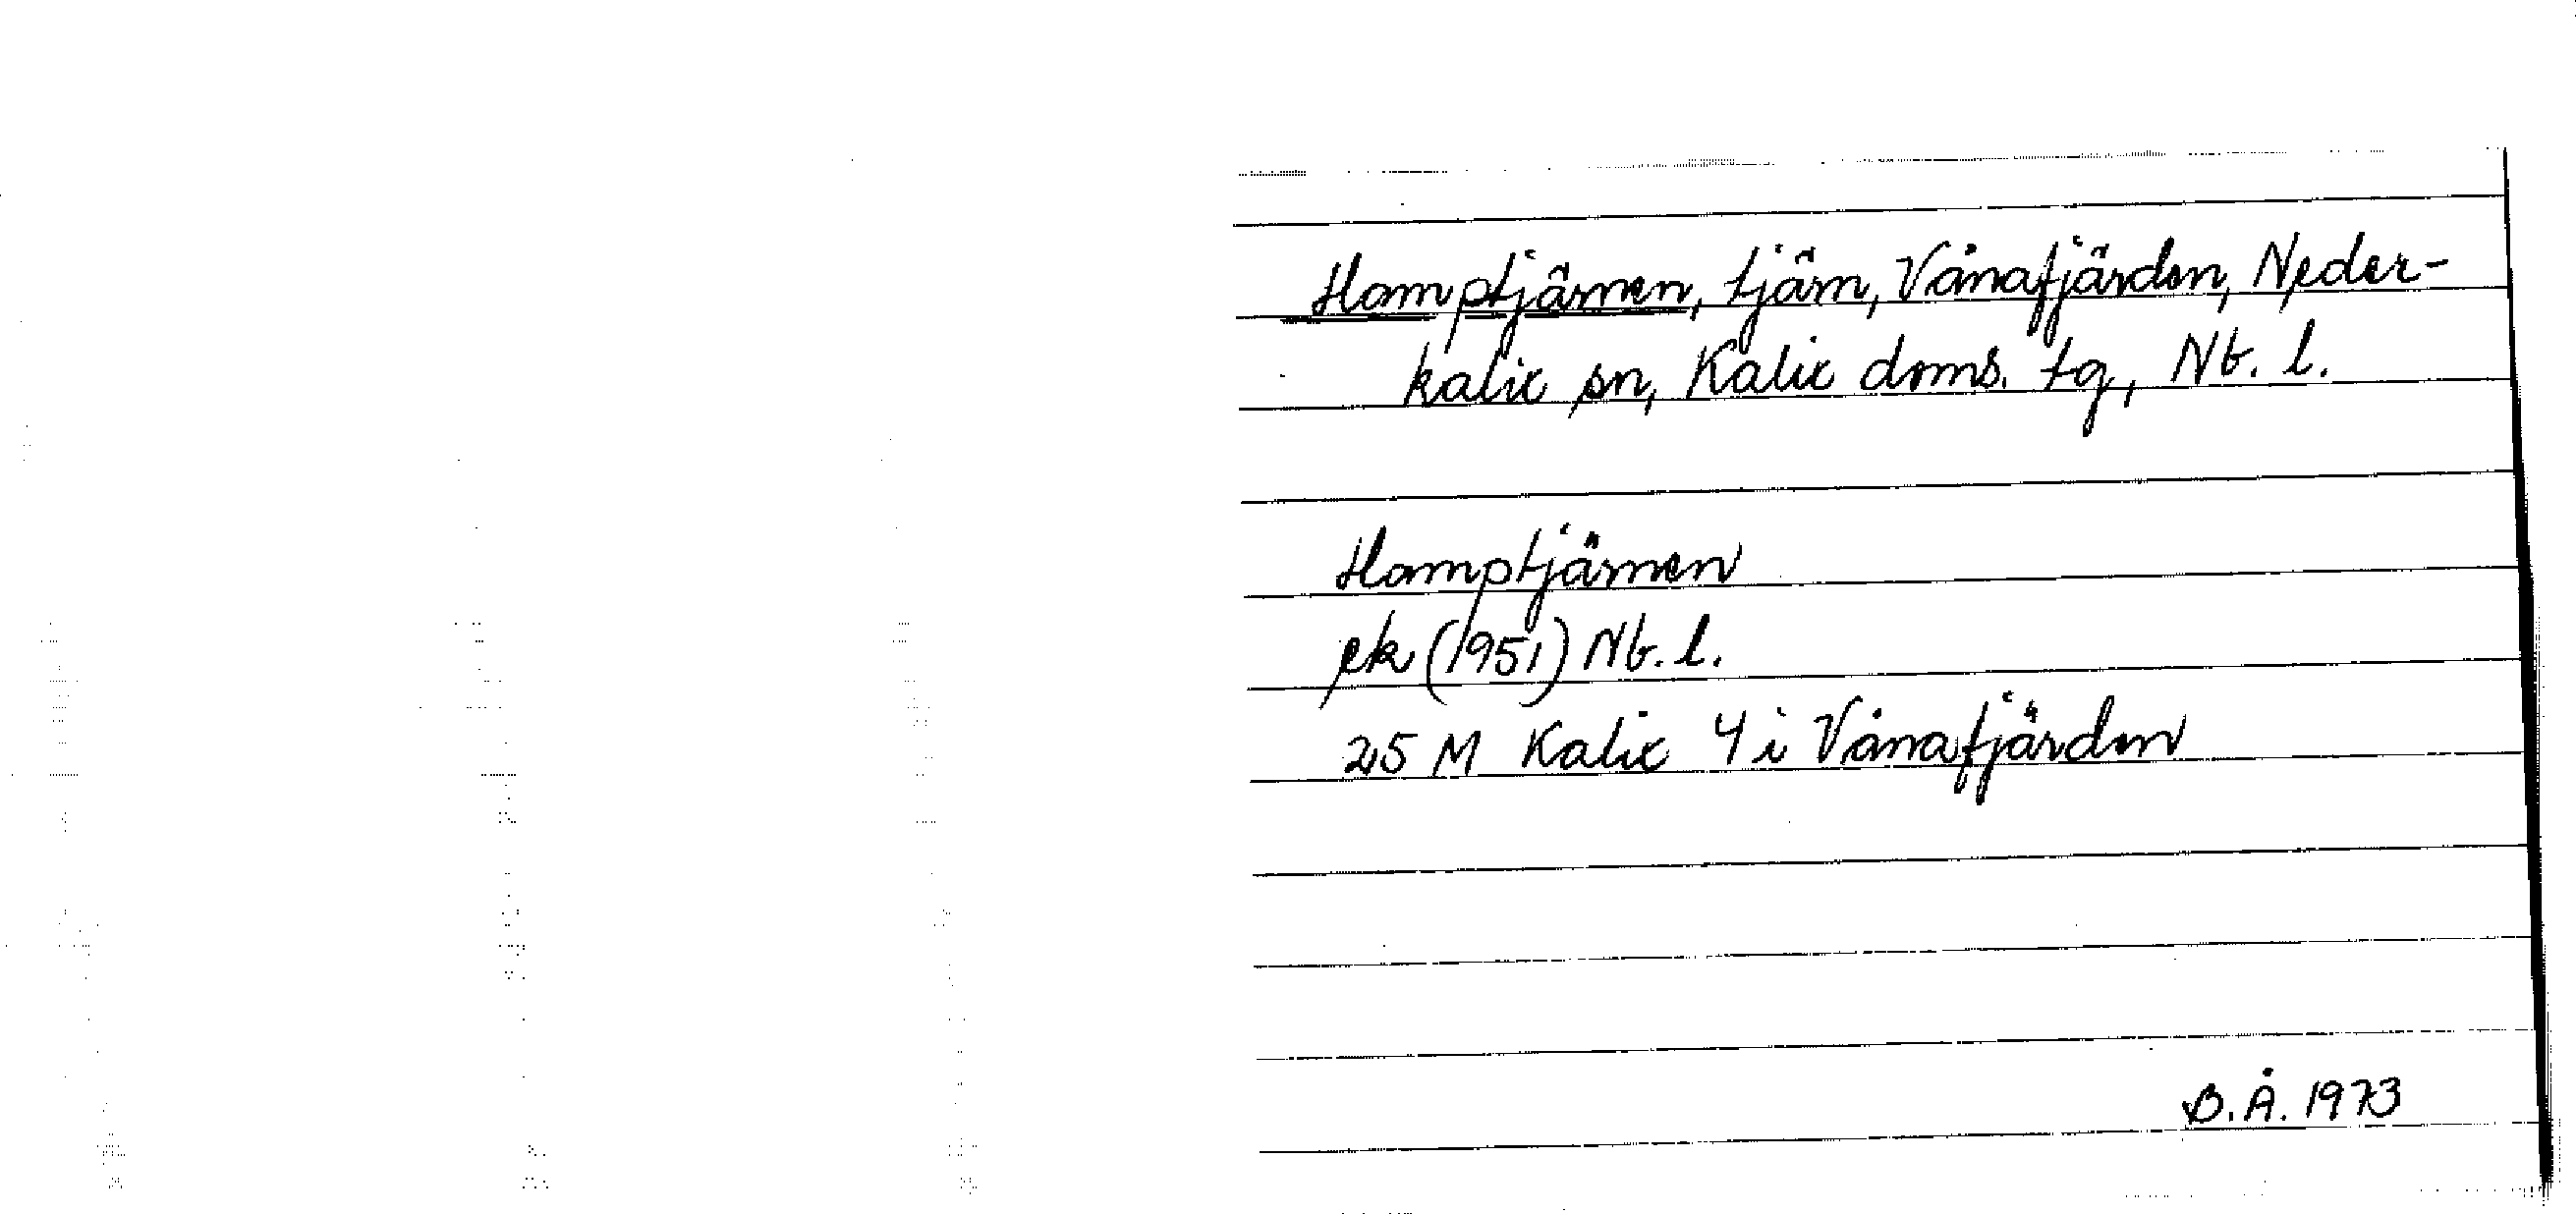 Hamptjärnen, tjärn, Vånafjärden, Neder-
kalix sn, Kalix doms. tg, Nb. l.
Hamptjärnen
ek (1951) Nb. l.
25 M Kalix 4 i Vånafjärden
B.Å. 1973